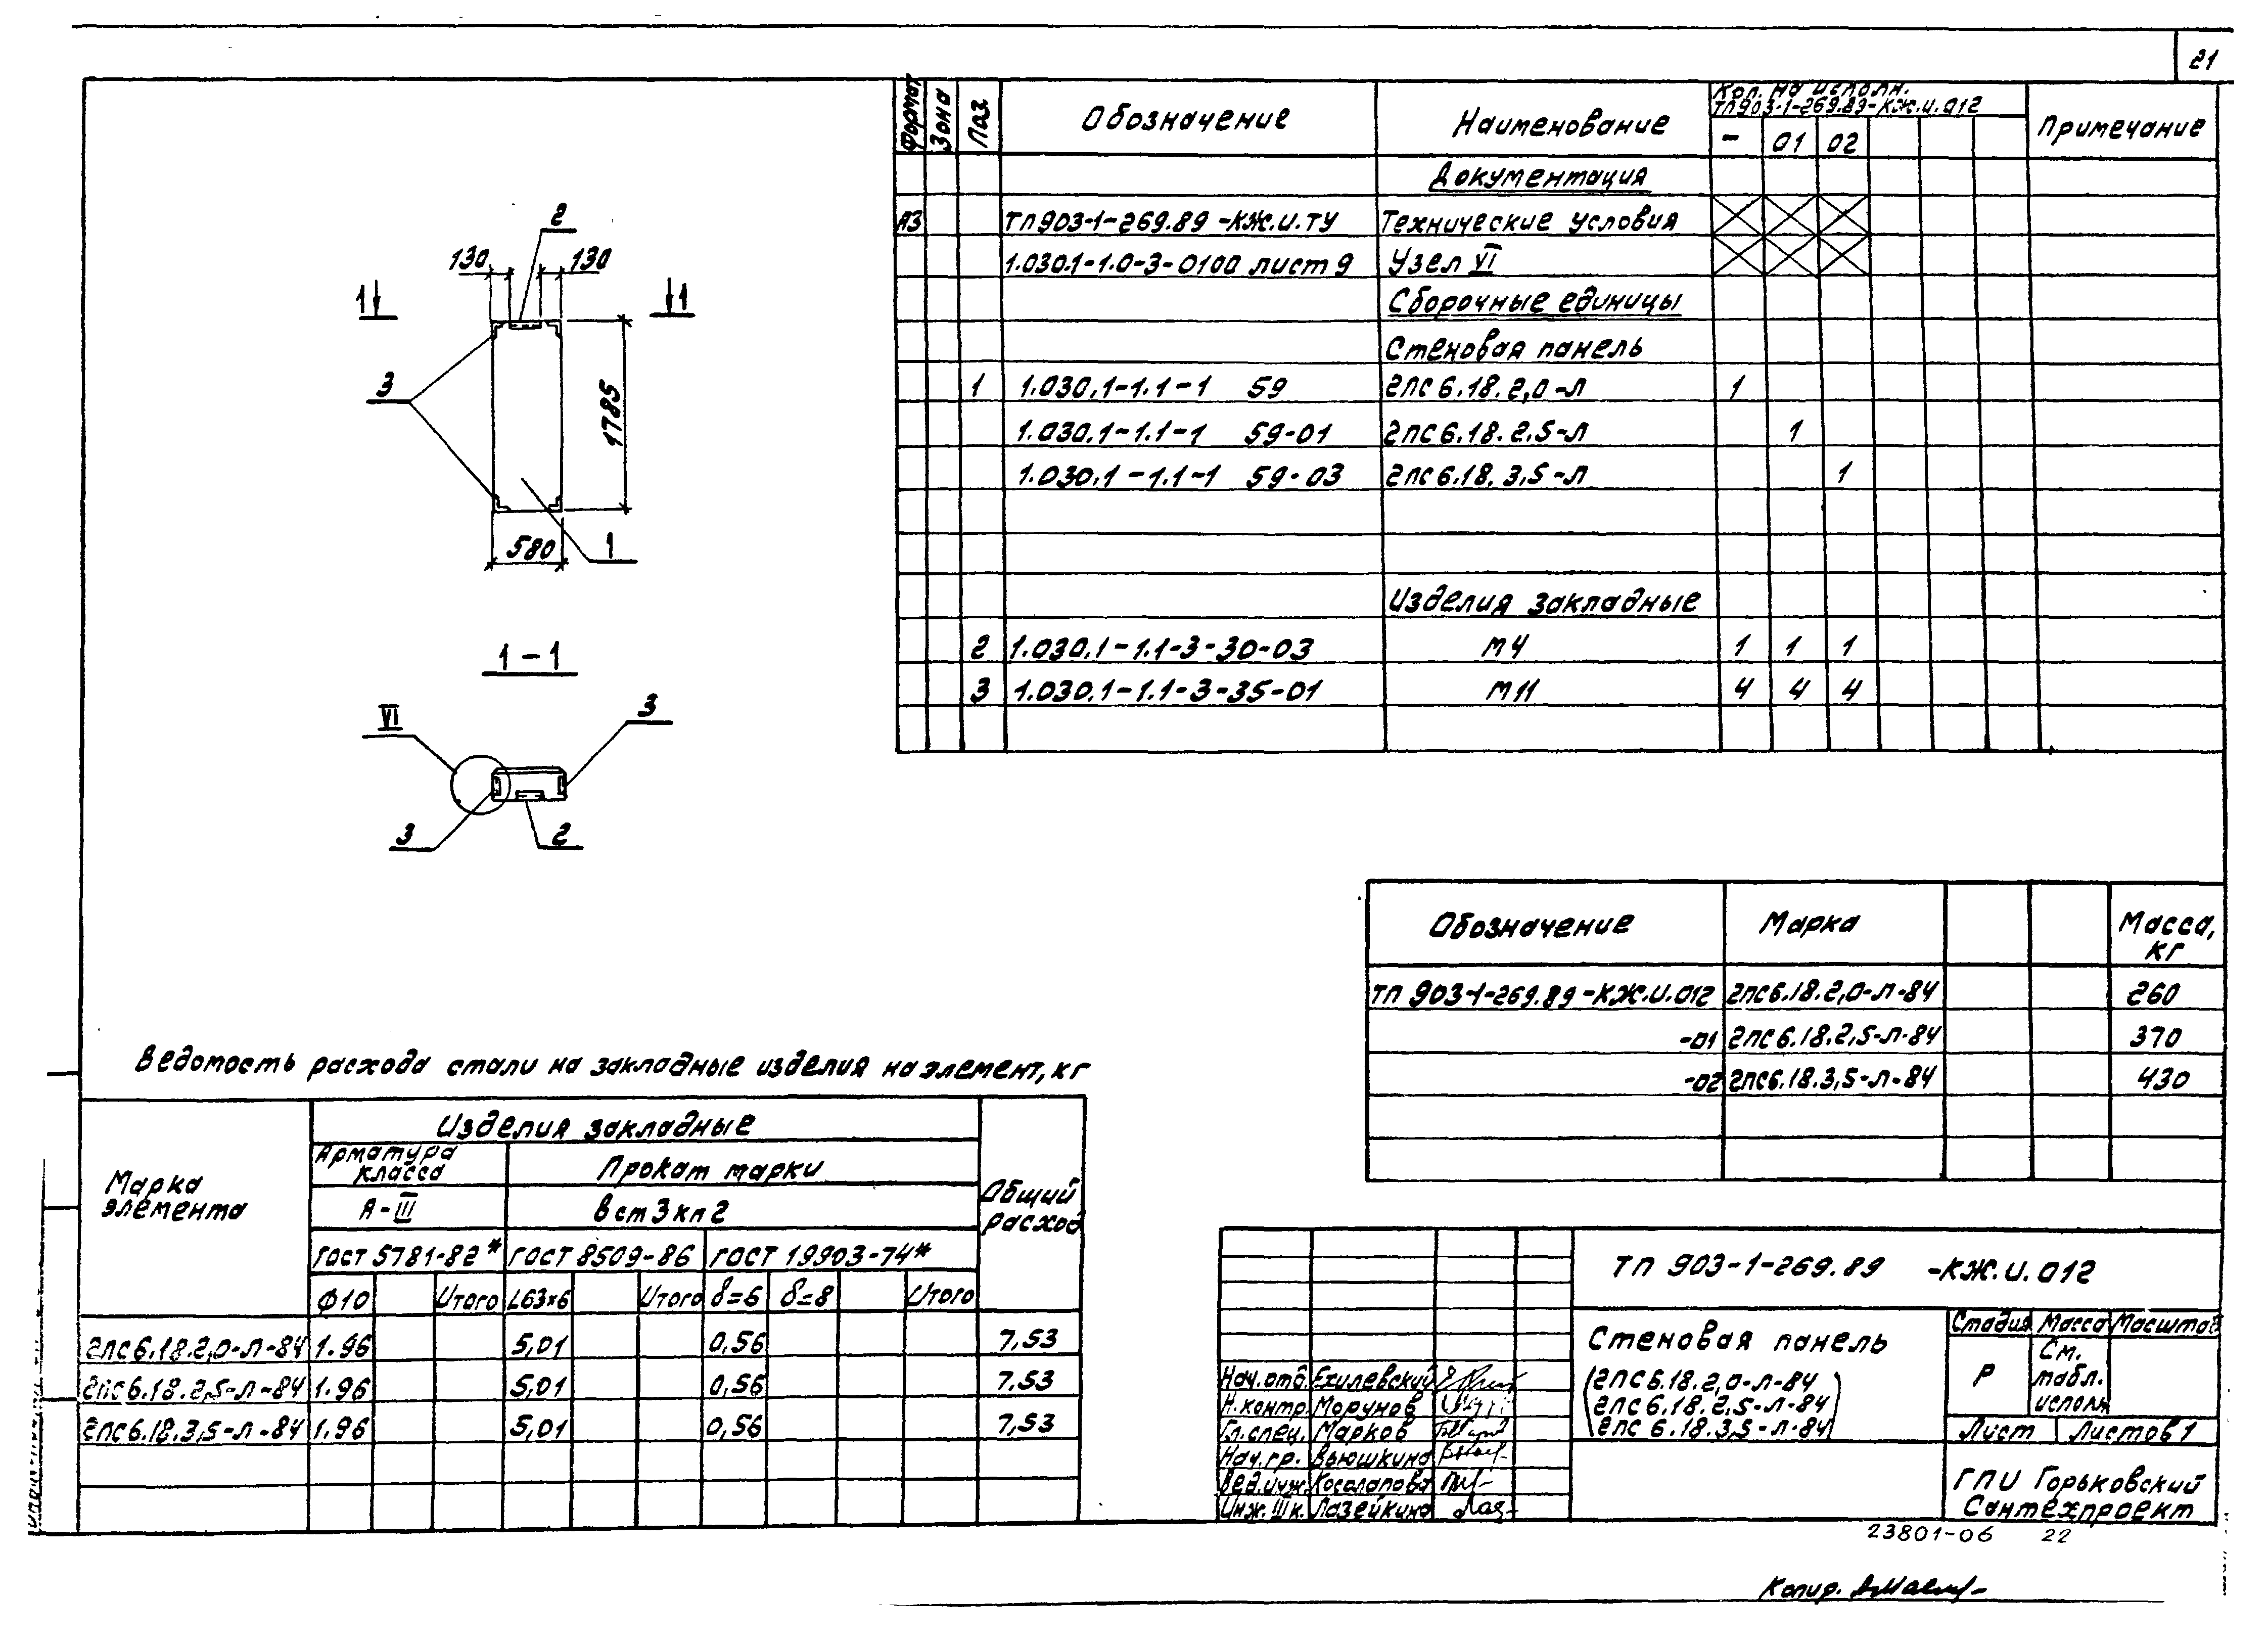 21
Формат Зона Поз Обозначение Наименование Кол. на исполн. Примечание
ТП903-1-269.89-КЖ.И.012
- 01 02
Документация
А3 ТП903-1-269.89-КЖ.И.ТУ Технические условия
1.030.1-1.0-3-0100 лист 9 Узел VI
Сборочные единицы
Стеновая панель
1 1.030.1-1.1-1 59 2ПС6.18.2,0-Л 1
1.030.1-1.1-1 59-01 2ПС6.18.2.5-Л 1
1.030.1-1.1-1 59-03 2ПС6.18.3,5-Л 1
Изделия закладные
2 1.030.1-1.1-3-30-03 М4 1 1 1
3 1.030.1-1.1-3-35-01 М11 4 4 4
2
130 130
1 1
3
1785
580 1
1-1
VI 3
3 2
Обозначение Марка Масса, кг
ТП 903-1-269.89-КЖ.И.012 2ПС6.18.2,0-Л-84 260
-01 2ПС6.18.2,5-Л-84 370
-02 2ПС6.18.3,5-Л-84 430
Ведомость расхода стали на закладные изделия на элемент, кг
Марка элемента Изделия закладные Общий расход
Арматура класса Прокат марки
А-III Вст3кп2
ГОСТ 5781-82* ГОСТ 8509-86 ГОСТ 19903-74*
Ф10 Итого L63х6 Итого δ=6 δ=8 Итого
2ПС6.18.2,0-Л-84 1.96 5,01 0,56 7,53
2ПС6.18.2,5-Л-84 1.96 5,01 0,56 7.53
2ПС6.18.3,5-Л-84 1.96 5,01 0,56 7,53
ТП 903-1-269.89 -КЖ.И.012
Стеновая панель
(2ПС6.18.2,0-Л-84
2ПС6.18.2,5-Л-84
2ПС 6.18.3,5-Л-84)
Стадия Масса Масштаб
Р См. табл. исполн
Лист Листов 1
Нач.отд. Ехилевский
Н.контр. Морунов
Гл.спец. Марков
Нач.гр. Вьюшкина
Вед.инж. Косолапова
Инж. IIIк. Лазейкина
ГПИ Горьковский
Сантехпроект
23801-06 22
Копир.